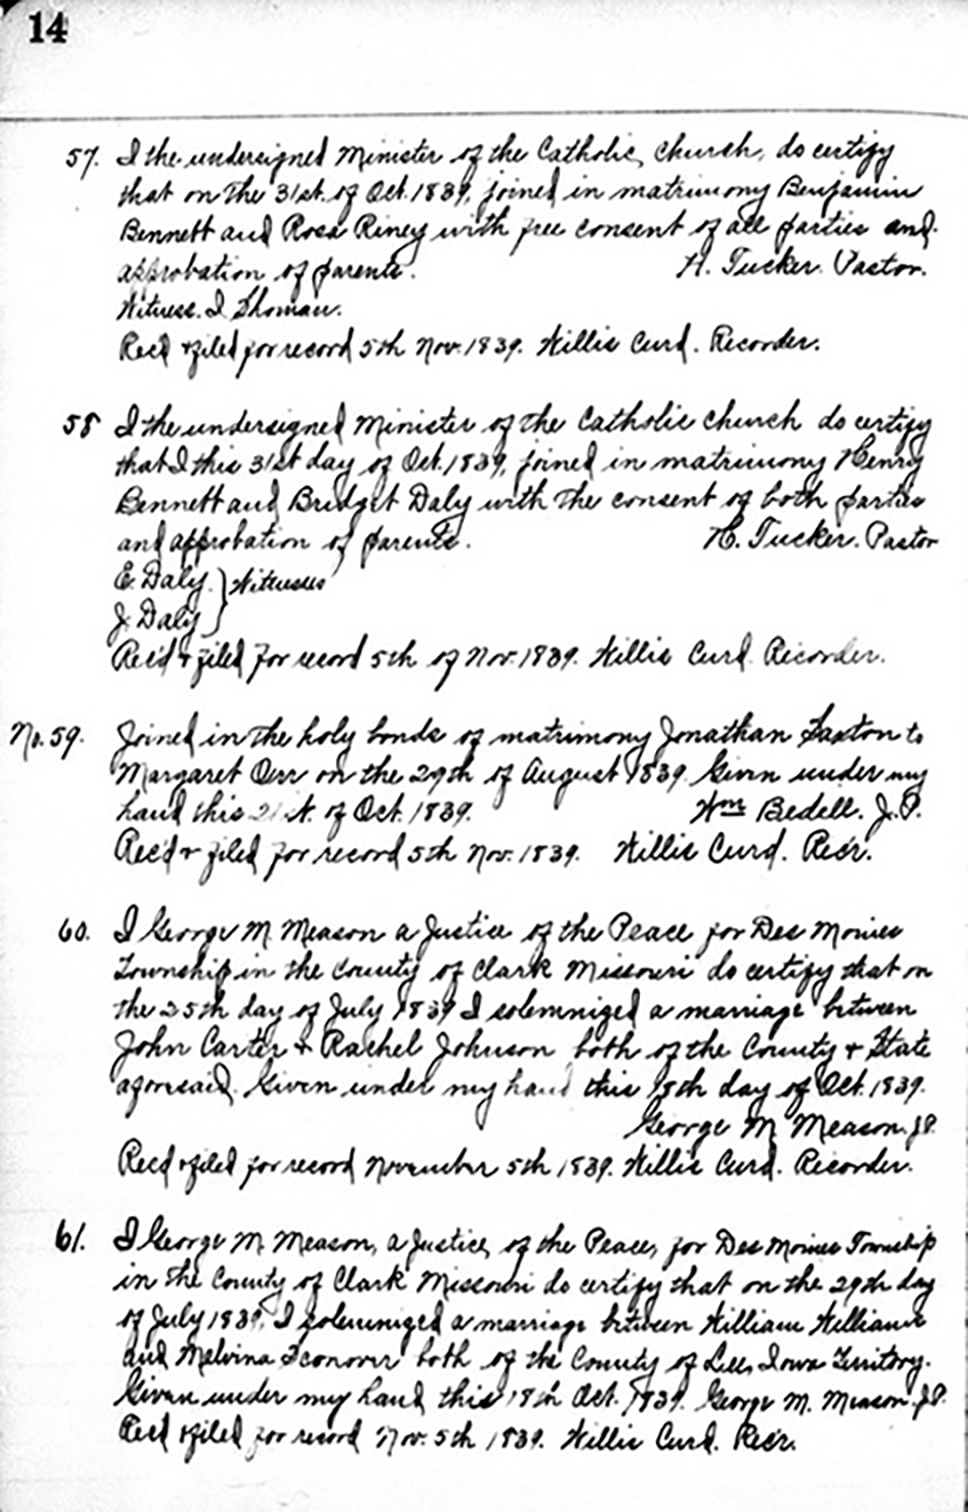 14
57. I the undersigned Minister of the Catholic Church, do certify
that on the 31st. of Oct. 1839, joined in matrimony Benjamin
Bennett and Rosa Riney with free consent of all parties and
approbation of parents. H. Tucker. Pastor.
Witness. I. Shoman.
Rec'd & filed for record 5th Nov. 1839. Willis Curd. Recorder.
58 I the undersigned Minister of the Catholic Church do certify
that I this 31st day of Oct. 1839, joined in matrimony Henry
Bennett and Bridget Daly with the consent of both parties
and approbation of parents. H. Tucker. Pastor
E. Daly. } Witnesses
J. Daly
Rec'd & filed for record 5th of Nov. 1839. Willis Curd Recorder.
No. 59. Joined in the holy bonds of matrimony Jonathan Saxton to
Margaret Orr on the 29th of August 1839. Given under my
hand this 21st. of Oct. 1839. Wm Bedell. J.P.
Rec'd & filed for record 5th Nov. 1839. Willis Curd. Rec'r.
60. I George M. Meason a Justice of the Peace for Des Moines
Township in the County of Clark Missouri do certify that on
the 25th day of July 1839 I solemnized a marriage between
John Carter & Rachel Johnson both of the County & State
aforesaid. Given under my hand this 18th day of Oct. 1839.
George M. Meason. J.P.
Rec'd & filed for record November 5th 1839. Willis Curd. Recorder.
61. I George M. Meason, a Justice, of the Peace, for Des Moines Township
in the County of Clark Missouri do certify that on the 29th day
of July 1839, I solemnized a marriage between William Williams
and Melvina both of the County of Lee, Iowa Territory.
Given under my hand this 18th Oct. 1839. George M. Meason. J.P.
Rec'd & filed for record Nov. 5th 1839. Willis Curd. Rec'r.